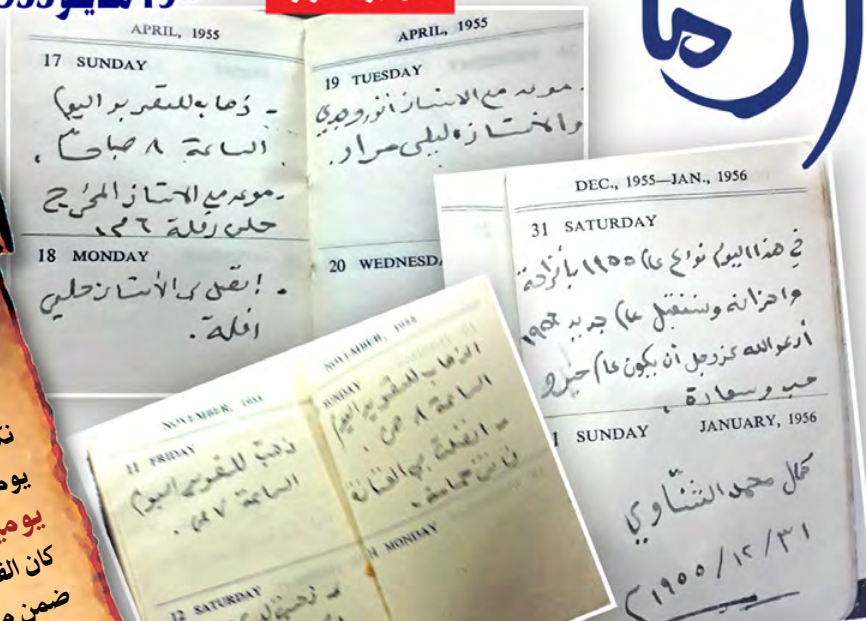 19 مايو
APRIL, 1955
17 SUNDAY
- ذهاب للتصوير اليوم
الساعة ٨ صباحاً.
- موعد مع الاستاذ المخرج
حلمي رفلة ٦ م.
18 MONDAY
- إتصل بى الأستاذ حلمي
رفلة.
APRIL, 1955
19 TUESDAY
- موعد مع الاستاذ أنور وجدي
والاستاذة ليلى مراد.
20 WEDNESDA
DEC., 1955—JAN., 1956
31 SATURDAY
في هذا اليوم نودع عام ١٩٥٥ بأفراحه
واحزانه ونستقبل عام جديد ١٩٥٦
أدعو الله عز وجل أن يكون عام خير و
حب وسعادة.
1 SUNDAY JANUARY, 1956
كمال محمد الشناوي
١٩٥٥/١٢/٣١ م
NOVEMBER,
11 FRIDAY
ذهبت للتصوير اليوم
الساعة ٧ ص.
12 SATURDAY
NOVEMBER,
SUNDAY
الذهاب للتصوير اليوم
الساعة ٨ ص.
- اتصلت بي الفنانة
فاتن حمامة.
MONDAY
كان
ضمن